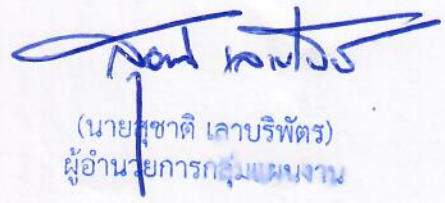 (นายสุชาติ เลาบริพัตร)
ผู้อำนวยการกลุ่มแผนงาน